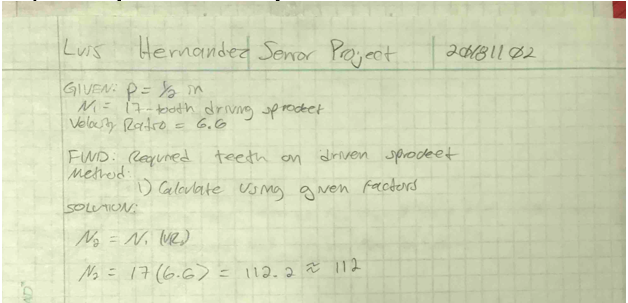 Luis Hernandez Senior Project 20181102
GIVEN: P = 1/2 in
N₁ = 17-tooth driving sprocket
Velocity Ratio = 6.6
FIND: Required teeth on driven sprocket
Method:
1) Calculate using given factors
SOLUTION:
N₂ = N₁ (VR)
N₂ = 17(6.6) = 112.2 ≈ 112